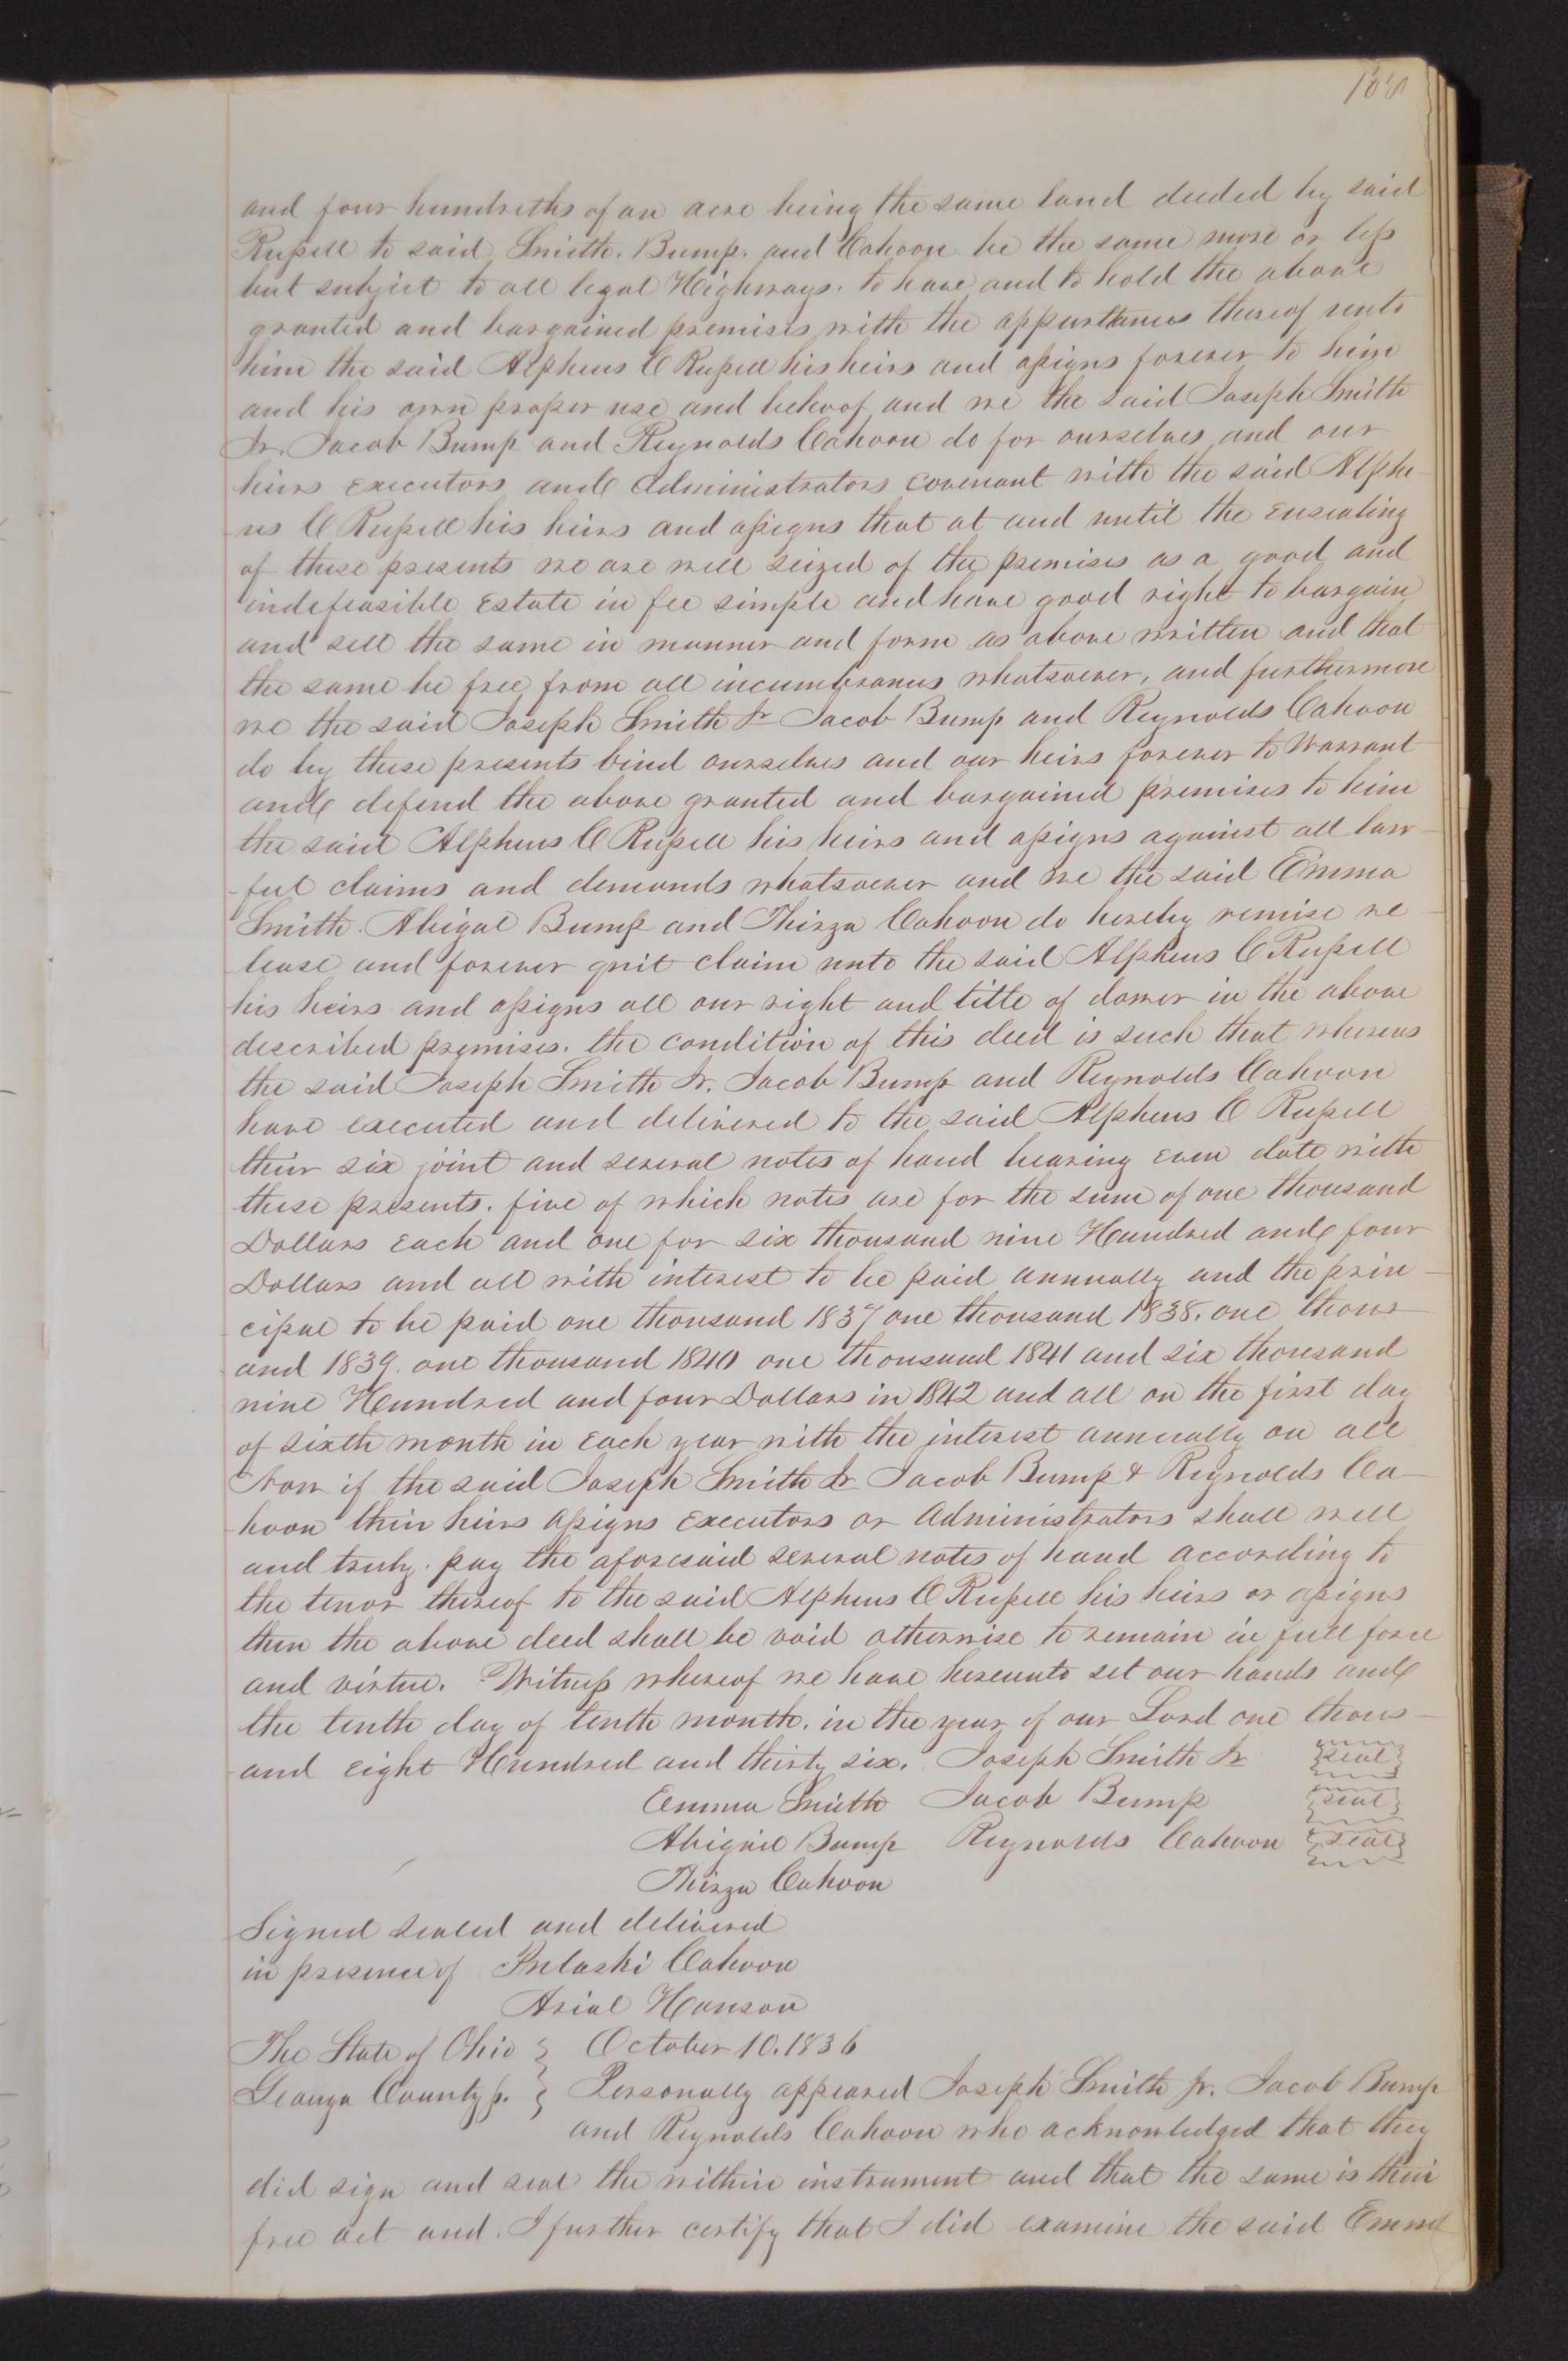 and four hundreths of an acre being the same land deeded by said
Russell to said Smith. Bump. and Cahoon be the same more or less
but subject to all legal Highways. to have and to hold the above
granted and bargained premises with the appurtances thereof unto
him the said Alpheus C Russell his heirs and assigns forever to him
and his own proper use and behoof and we the said Joseph Smith
Jr. Jacob Bump and Reynolds Cahoon do for ourselves and our
heirs executors and administrators covenant with the said Alphe-
us C Russell his heirs and assigns that at and until the ensealing
of these presents we are well seized of the premises as a good and
indefeasible Estate in fee simple and have good right to bargain
and sell the same in manner and form as above written and that
the same be free from all incumbrances whatsoever, and furthermore
we the said Joseph Smith Jr Jacob Bump and Reynolds Cahoon
do by these presents bind ourselves and our heirs forever to Warrant
and defend the above granted and bargained premises to him
the said Alpheus C Russell his heirs and assigns against all law-
ful claims and demands whatsoever and we the said Emma
Smith. Abigal Bump and Thirza Cahoon do hereby remise re-
lease and forever quit claim unto the said Alpheus C Russell
his heirs and assigns all our right and title of dower in the above
described premises. the condition of this deed is such that whereas
the said Joseph Smith Jr. Jacob Bump and Reynolds Cahoon
have executed and delivered to the said Alpheus C Russell
their six joint and several notes of hand bearing even date with
these presents. five of which notes are for the sum of one thousand
Dollars each and one for six thousand nine Hundred and four
Dollars and all with interest to be paid annually and the prin-
cipal to be paid one thousand 1837 one thousand 1838. one thous-
and 1839. one thousand 1840 one thousand 1841 and six thousand
nine Hundred and four Dollars in 1842 and all on the first day
of sixth month in each year with the interest annually on all
Now if the said Joseph Smith Jr Jacob Bump & Reynolds Ca-
hoon their heirs assigns executors or administrators shall well
and truly. pay the aforesaid several notes of hand according to
the tenor thereof to the said Alpheus C Russell his heirs or assigns
then the above deed shall be void otherwise to remain in full force
and virtue. Witness whereof we have hereunto set our hands and
the tenth day of tenth month. in the year of our Lord one thous-
and eight Hundred and thirty six. Joseph Smith Jr {seal}
Emma Smith Jacob Bump {seal}
Abigail Bump Reynolds Cahoon {seal}
Thirza Cahoon
Signed sealed and delivered
in presence of Pulaski Cahoon
Arial Hanson
The State of Ohio } October 10. 1836
Geauga County ss. } Personally appeared Joseph Smith Jr. Jacob Bump
and Reynolds Cahoon who acknowledged that they
did sign and seal the within instrument and that the same is their
free act and. I further certify that I did examine the said Emma